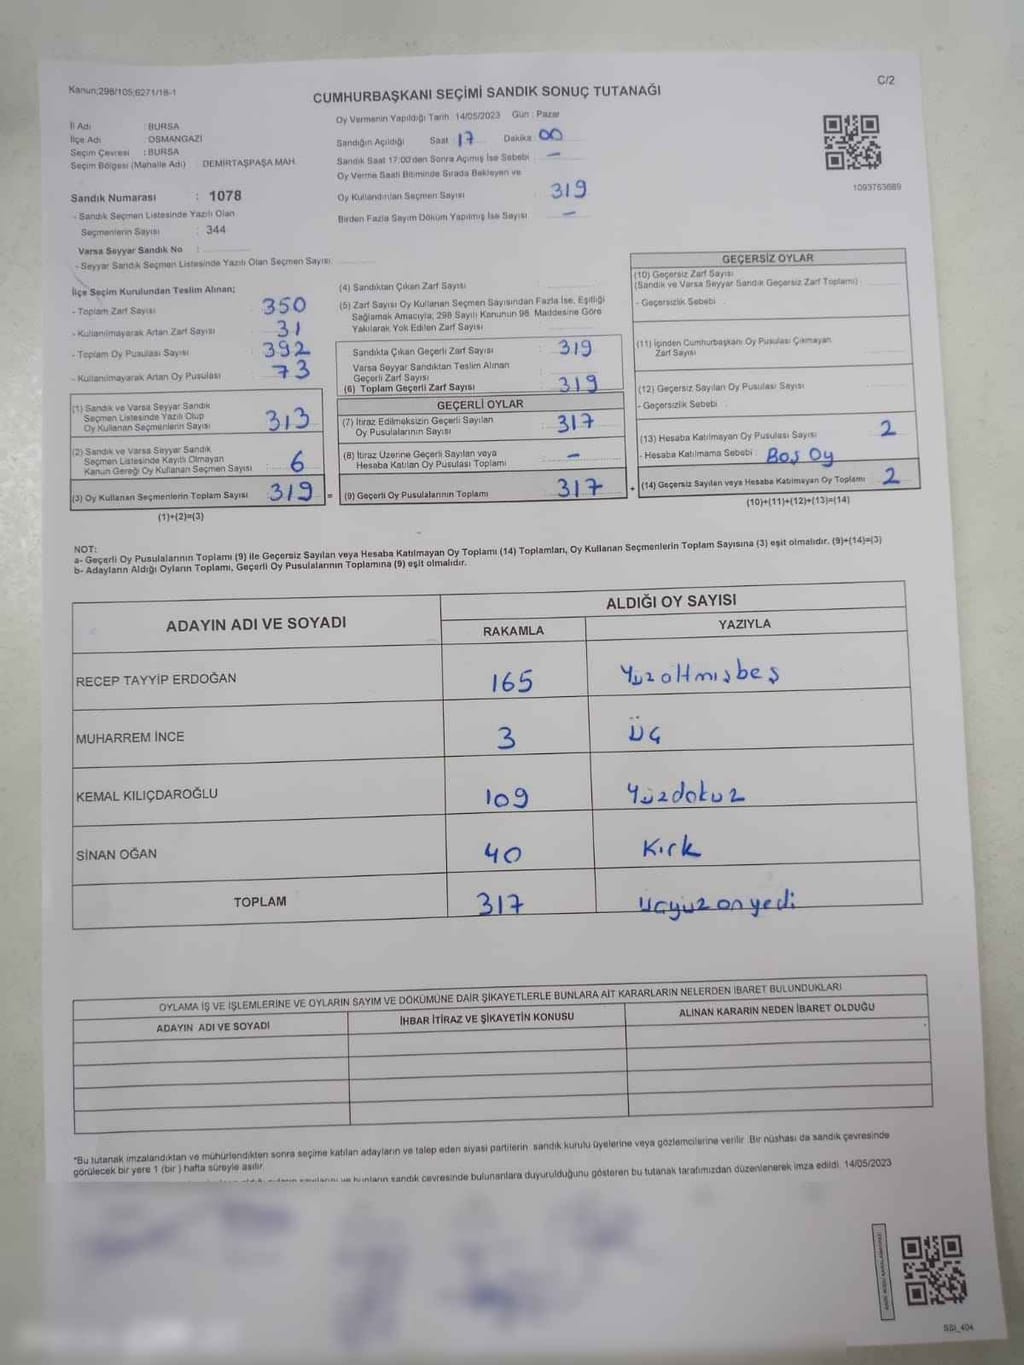 Kanun;298/105;6271/18-1
C/2
CUMHURBAŞKANI SEÇİMİ SANDIK SONUÇ TUTANAĞI
İl Adı : BURSA
İlçe Adı : OSMANGAZİ
Seçim Çevresi : BURSA
Seçim Bölgesi (Mahalle Adı) DEMİRTAŞPAŞA MAH.
Sandık Numarası : 1078
- Sandık Seçmen Listesinde Yazılı Olan
Seçmenlerin Sayısı : 344
Varsa Seyyar Sandık No :
- Seyyar Sandık Seçmen Listesinde Yazılı Olan Seçmen Sayısı:
Oy Vermenin Yapıldığı Tarih 14/05/2023 Gün : Pazar
Sandığın Açıldığı Saat 17 Dakika 00
Sandık Saat 17:00'den Sonra Açılmış İse Sebebi –
Oy Verme Saati Bitiminde Sırada Bekleyen ve
Oy Kullandırılan Seçmen Sayısı 319
Birden Fazla Sayım Döküm Yapılmış İse Sayısı –
1093763689
İlçe Seçim Kurulundan Teslim Alınan;
- Toplam Zarf Sayısı : 350
- Kullanılmayarak Artan Zarf Sayısı : 31
- Toplam Oy Pusulası Sayısı : 392
- Kullanılmayarak Artan Oy Pusulası : 73
(1) Sandık ve Varsa Seyyar Sandık
Seçmen Listesinde Yazılı Olup
Oy Kullanan Seçmenlerin Sayısı : 313
(2) Sandık ve Varsa Seyyar Sandık
Seçmen Listesinde Kayıtlı Olmayan
Kanun Gereği Oy Kullanan Seçmen Sayısı : 6
(3) Oy Kullanan Seçmenlerin Toplam Sayısı : 319 =
(1)+(2)=(3)
(4) Sandıktan Çıkan Zarf Sayısı :
(5) Zarf Sayısı Oy Kullanan Seçmen Sayısından Fazla İse, Eşitliği
Sağlamak Amacıyla, 298 Sayılı Kanunun 98. Maddesine Göre
Yakılarak Yok Edilen Zarf Sayısı :
Sandıkta Çıkan Geçerli Zarf Sayısı : 319
Varsa Seyyar Sandıktan Teslim Alınan
Geçerli Zarf Sayısı :
(6) Toplam Geçerli Zarf Sayısı : 319
GEÇERLİ OYLAR
(7) İtiraz Edilmeksizin Geçerli Sayılan
Oy Pusulalarının Sayısı : 317
(8) İtiraz Üzerine Geçerli Sayılan veya
Hesaba Katılan Oy Pusulası Toplamı : –
(9) Geçerli Oy Pusulalarının Toplamı : 317 +
GEÇERSİZ OYLAR
(10) Geçersiz Zarf Sayısı
(Sandık ve Varsa Seyyar Sandık Geçersiz Zarf Toplamı) :
- Geçersizlik Sebebi :
(11) İçinden Cumhurbaşkanı Oy Pusulası Çıkmayan
Zarf Sayısı :
(12) Geçersiz Sayılan Oy Pusulası Sayısı :
- Geçersizlik Sebebi :
(13) Hesaba Katılmayan Oy Pusulası Sayısı : 2
- Hesaba Katılmama Sebebi : Boş Oy
(14) Geçersiz Sayılan veya Hesaba Katılmayan Oy Toplamı : 2
(10)+(11)+(12)+(13)=(14)
NOT:
a- Geçerli Oy Pusulalarının Toplamı (9) ile Geçersiz Sayılan veya Hesaba Katılmayan Oy Toplamı (14) Toplamları, Oy Kullanan Seçmenlerin Toplam Sayısına (3) eşit olmalıdır. (9)+(14)=(3)
b- Adayların Aldığı Oyların Toplamı, Geçerli Oy Pusulalarının Toplamına (9) eşit olmalıdır.
ADAYIN ADI VE SOYADI ALDIĞI OY SAYISI
RAKAMLA YAZIYLA
RECEP TAYYİP ERDOĞAN 165 Yüzaltmışbeş
MUHARREM İNCE 3 Üç
KEMAL KILIÇDAROĞLU 109 Yüzdokuz
SİNAN OĞAN 40 Kırk
TOPLAM 317 üçyüzonyedi
OYLAMA İŞ VE İŞLEMLERİNE VE OYLARIN SAYIM VE DÖKÜMÜNE DAİR ŞİKAYETLERLE BUNLARA AİT KARARLARIN NELERDEN İBARET BULUNDUKLARI
ADAYIN ADI VE SOYADI İHBAR İTİRAZ VE ŞİKAYETİN KONUSU ALINAN KARARIN NEDEN İBARET OLDUĞU
*Bu tutanak imzalandıktan ve mühürlendikten sonra seçime katılan adayların ve talep eden siyasi partilerin sandık kurulu üyelerine veya gözlemcilerine verilir. Bir nüshası da sandık çevresinde
görülecek bir yere 1 (bir) hafta süreyle asılır.
ve bunların sandık çevresinde bulunanlara duyurulduğunu gösteren bu tutanak tarafımızdan düzenlenerek imza edildi. 14/05/2023
SSI_404